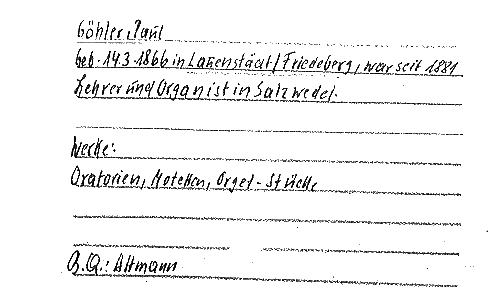 Göhler, Paul
geb. 14.3.1866 in Lauenstädt/Friedeberg, war seit 1881
Lehrer und Organist in Salzwedel.
Werke:
Oratorien, Motetten, Orgel-Stücke
B.Q.: Altmann